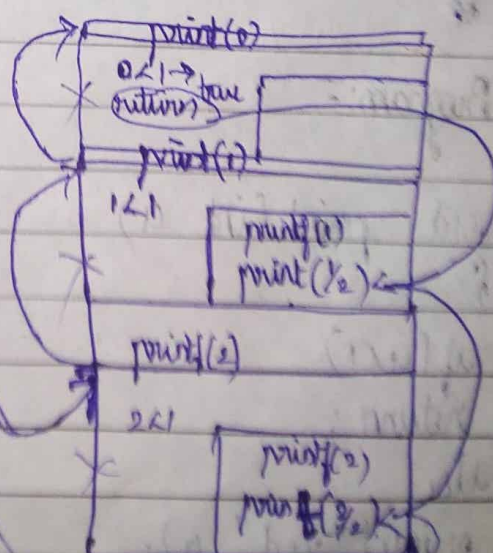 print(0)
0<1→ true
return;
print(1)
1<1
printf(1)
print(1/2)
printf(2)
2<1
printf(2)
printf(2/2)